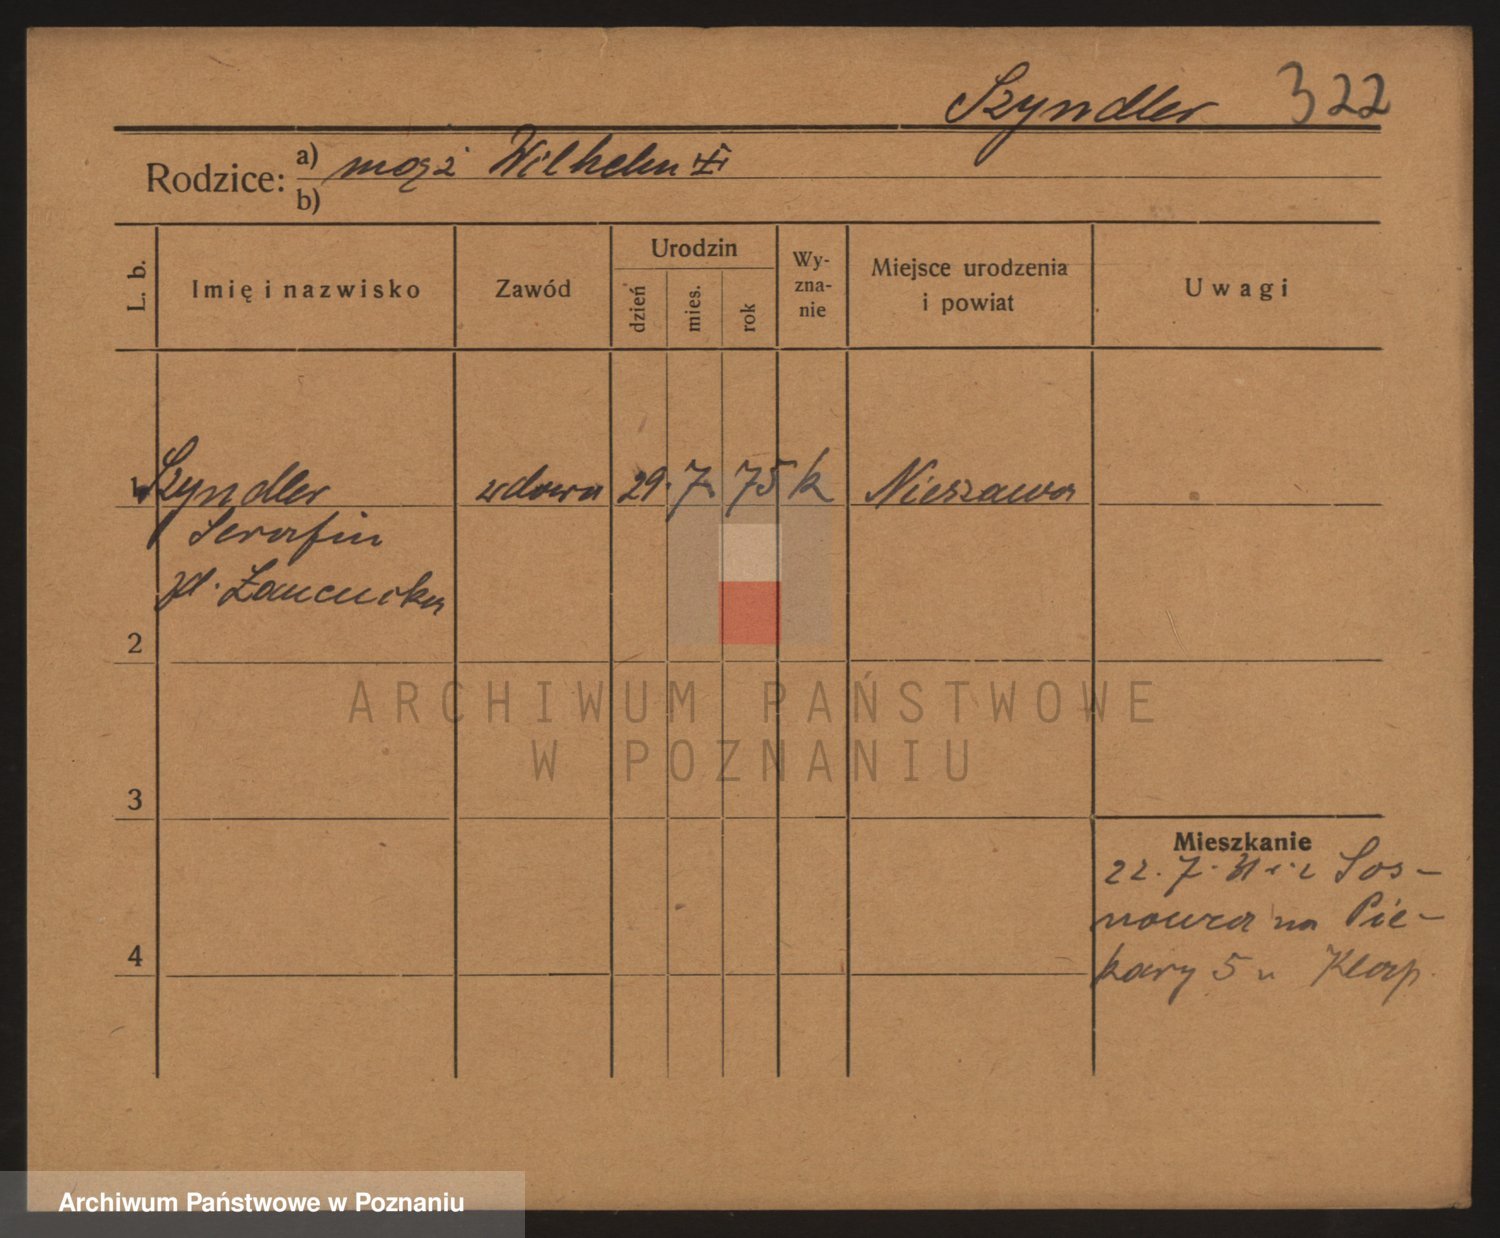 Szyndler 322
Rodzice: a) mąż Wilhelm
b)
L. b.
Imię i nazwisko
Zawód
Urodzin
dzień
mies.
rok
Wy-
zna-
nie
Miejsce urodzenia
i powiat
Uwagi
1 Szyndler wdowa 29. 7. 75 k Nieszawa
Serafin
zd.
2
ARCHIWUM PAŃSTWOWE
W POZNANIU
3
Mieszkanie
22. 7. 31 z Sos-
nowca na Pie-
kary 5 u Klap.
4
Archiwum Państwowe w Poznaniu